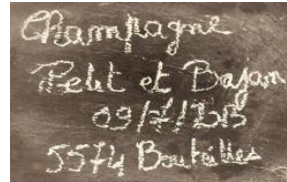 Champagne
Petit et Bajan
09/7/2015
5574 Bouteilles